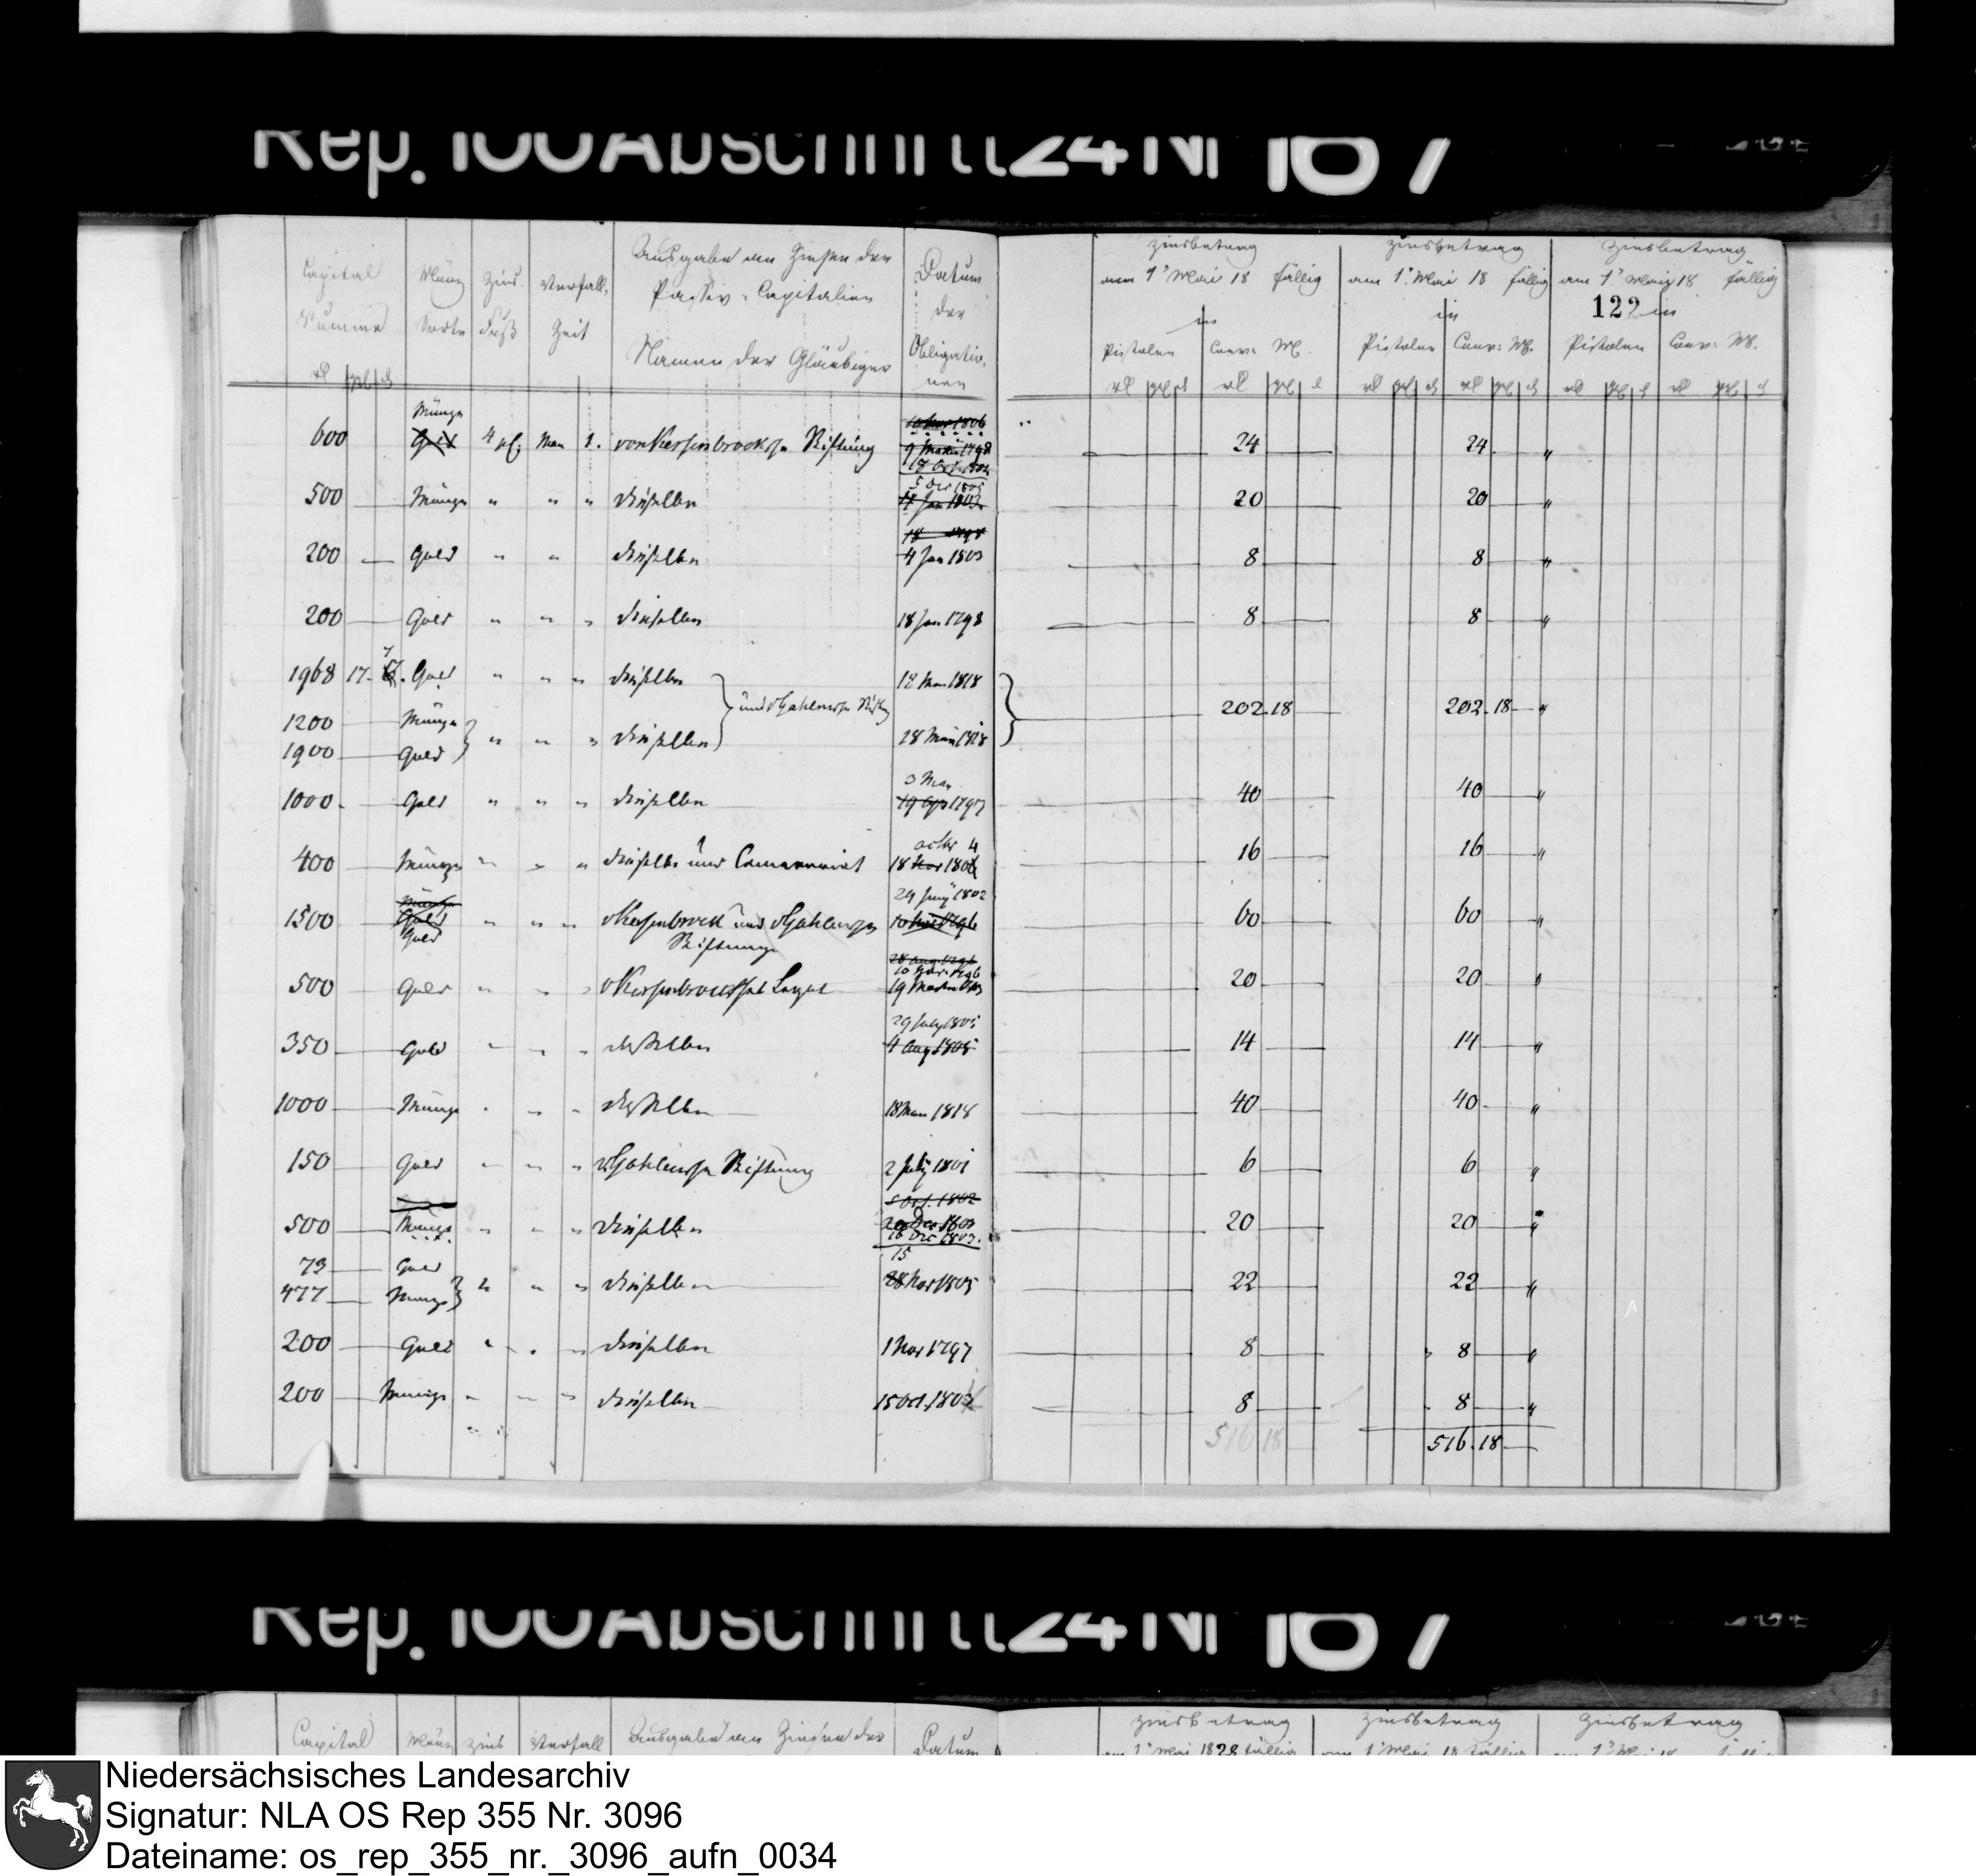 Rep. 100 Abschnitt 24 Nr 107
Capital Summe
rℓ
Münz Sorte
Zins Fuß
Verfall Zeit
Ausgabe an Zinsen der
Passiv-Capitalien
Namen der Gläubiger
Datum
der
Obligatio-
nen
Zinsbetrag
am 1. Mai 18 fällig
in
Pistolen Conv: M.
Zinsbetrag
am 1. Mai 18 fällig
in
Pistolen Conv: M.
Zinsbetrag
am 1. Mai 18 fällig
122 in
Pistolen Conv: M.
Münze
600 Gold 4 May 1. von Kerssenbrocksche Stiftung 9 1798 24 24 "
5 Dec 1805
500 Münze " " " dieselbe 20 20 "
200 Gold " " dieselbe 4 Jan 1803 8 8 "
200 Gold " " " dieselbe 18 Jan 1798 8 8 "
1968 17 7 Gold " " " dieselbe 1818
und vGahlensche 202 18 202 18 "
1200 Münze
1900 Gold " " " dieselben 28 1818
3 May
1000 Gold " " " dieselbe 1797 40 40 "
octbr 4
400 Münze " " " dieselbe und 18 Nov 180 16 16 "
29 Juny 1802
1500 Gold " " " vKerssenbrock und vGahlensche 60 60 "
Gold Stiftung
500 Gold " " " vKerssenbrocksches Legat 19 20 20 "
29 July 1805
350 Gold " " " dasselbe 4 Aug 1805 14 14 "
1000 Münze " " " dasselbe 18 May 1818 40 40 "
150 Gold " " " vGahlensche Stiftung 2 July 1801 6 6 "
5 Oct. 1802
500 Münze " " " dieselbe 20 20 "
16 Dec 1803.
73 Gold 15
477 Münze " " " dieselbe 28 Nov 1805 22 22 "
200 Gold " " " dieselbe 1 Nov 1797 8 8 "
200 Münze " " " dieselbe 15 Oct. 1803 8 8 "
516 18 516 18
Rep. 100 Abschnitt 24 Nr 107
Capital Münz Zins Verfall Ausgabe an Zinsen der Datum
Zinsbetrag Zinsbetrag Zinsbetrag
am 1. Mai 1828 fällig am 1. Mai 18 fällig
Niedersächsisches Landesarchiv
Signatur: NLA OS Rep 355 Nr. 3096
Dateiname: os_rep_355_nr._3096_aufn_0034